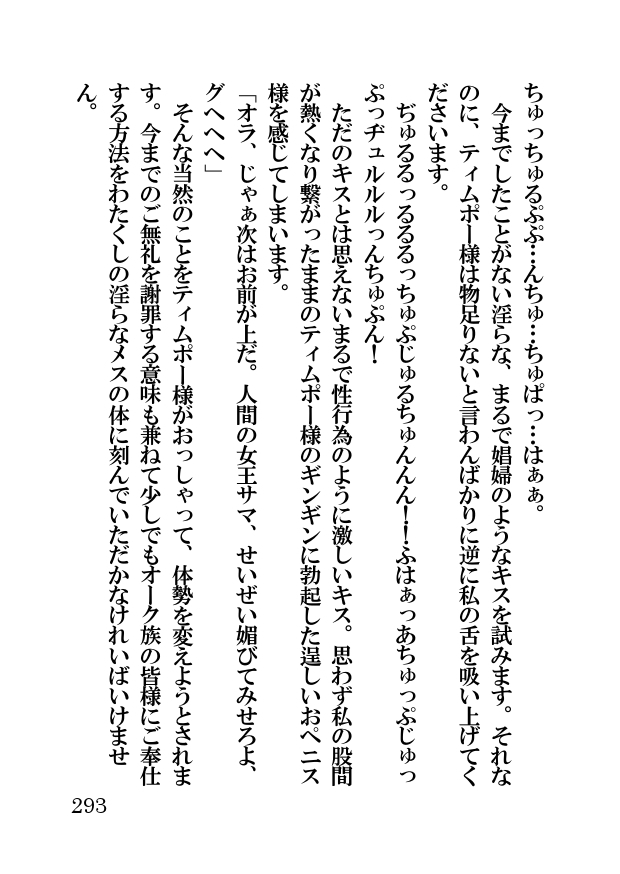 ちゅっちゅるぷぷ…んちゅ…ちゅぱっ…はぁぁ。
　今までしたことがない淫らな、まるで娼婦のようなキスを試みます。それな
のに、ティムポー様は物足りないと言わんばかりに逆に私の舌を吸い上げてく
ださいます。
　ぢゅるるっるるるっちゅぷじゅるちゅんん！！ふはぁっあちゅっぷじゅっ
ぷっヂュルルルっんちゅぷん！
　ただのキスとは思えないまるで性行為のように激しいキス。思わず私の股間
が熱くなり繋がったままのティムポー様のギンギンに勃起した逞しいおペニス
様を感じてしまいます。
「オラ、じゃぁ次はお前が上だ。人間の女王サマ、せいぜい媚びてみせろよ、
グヘヘヘ」
　そんな当然のことをティムポー様がおっしゃって、体勢を変えようとされま
す。今までのご無礼を謝罪する意味も兼ねて少しでもオーク族の皆様にご奉仕
する方法をわたくしの淫らなメスの体に刻んでいただかなけれいばいけませ
ん。
293